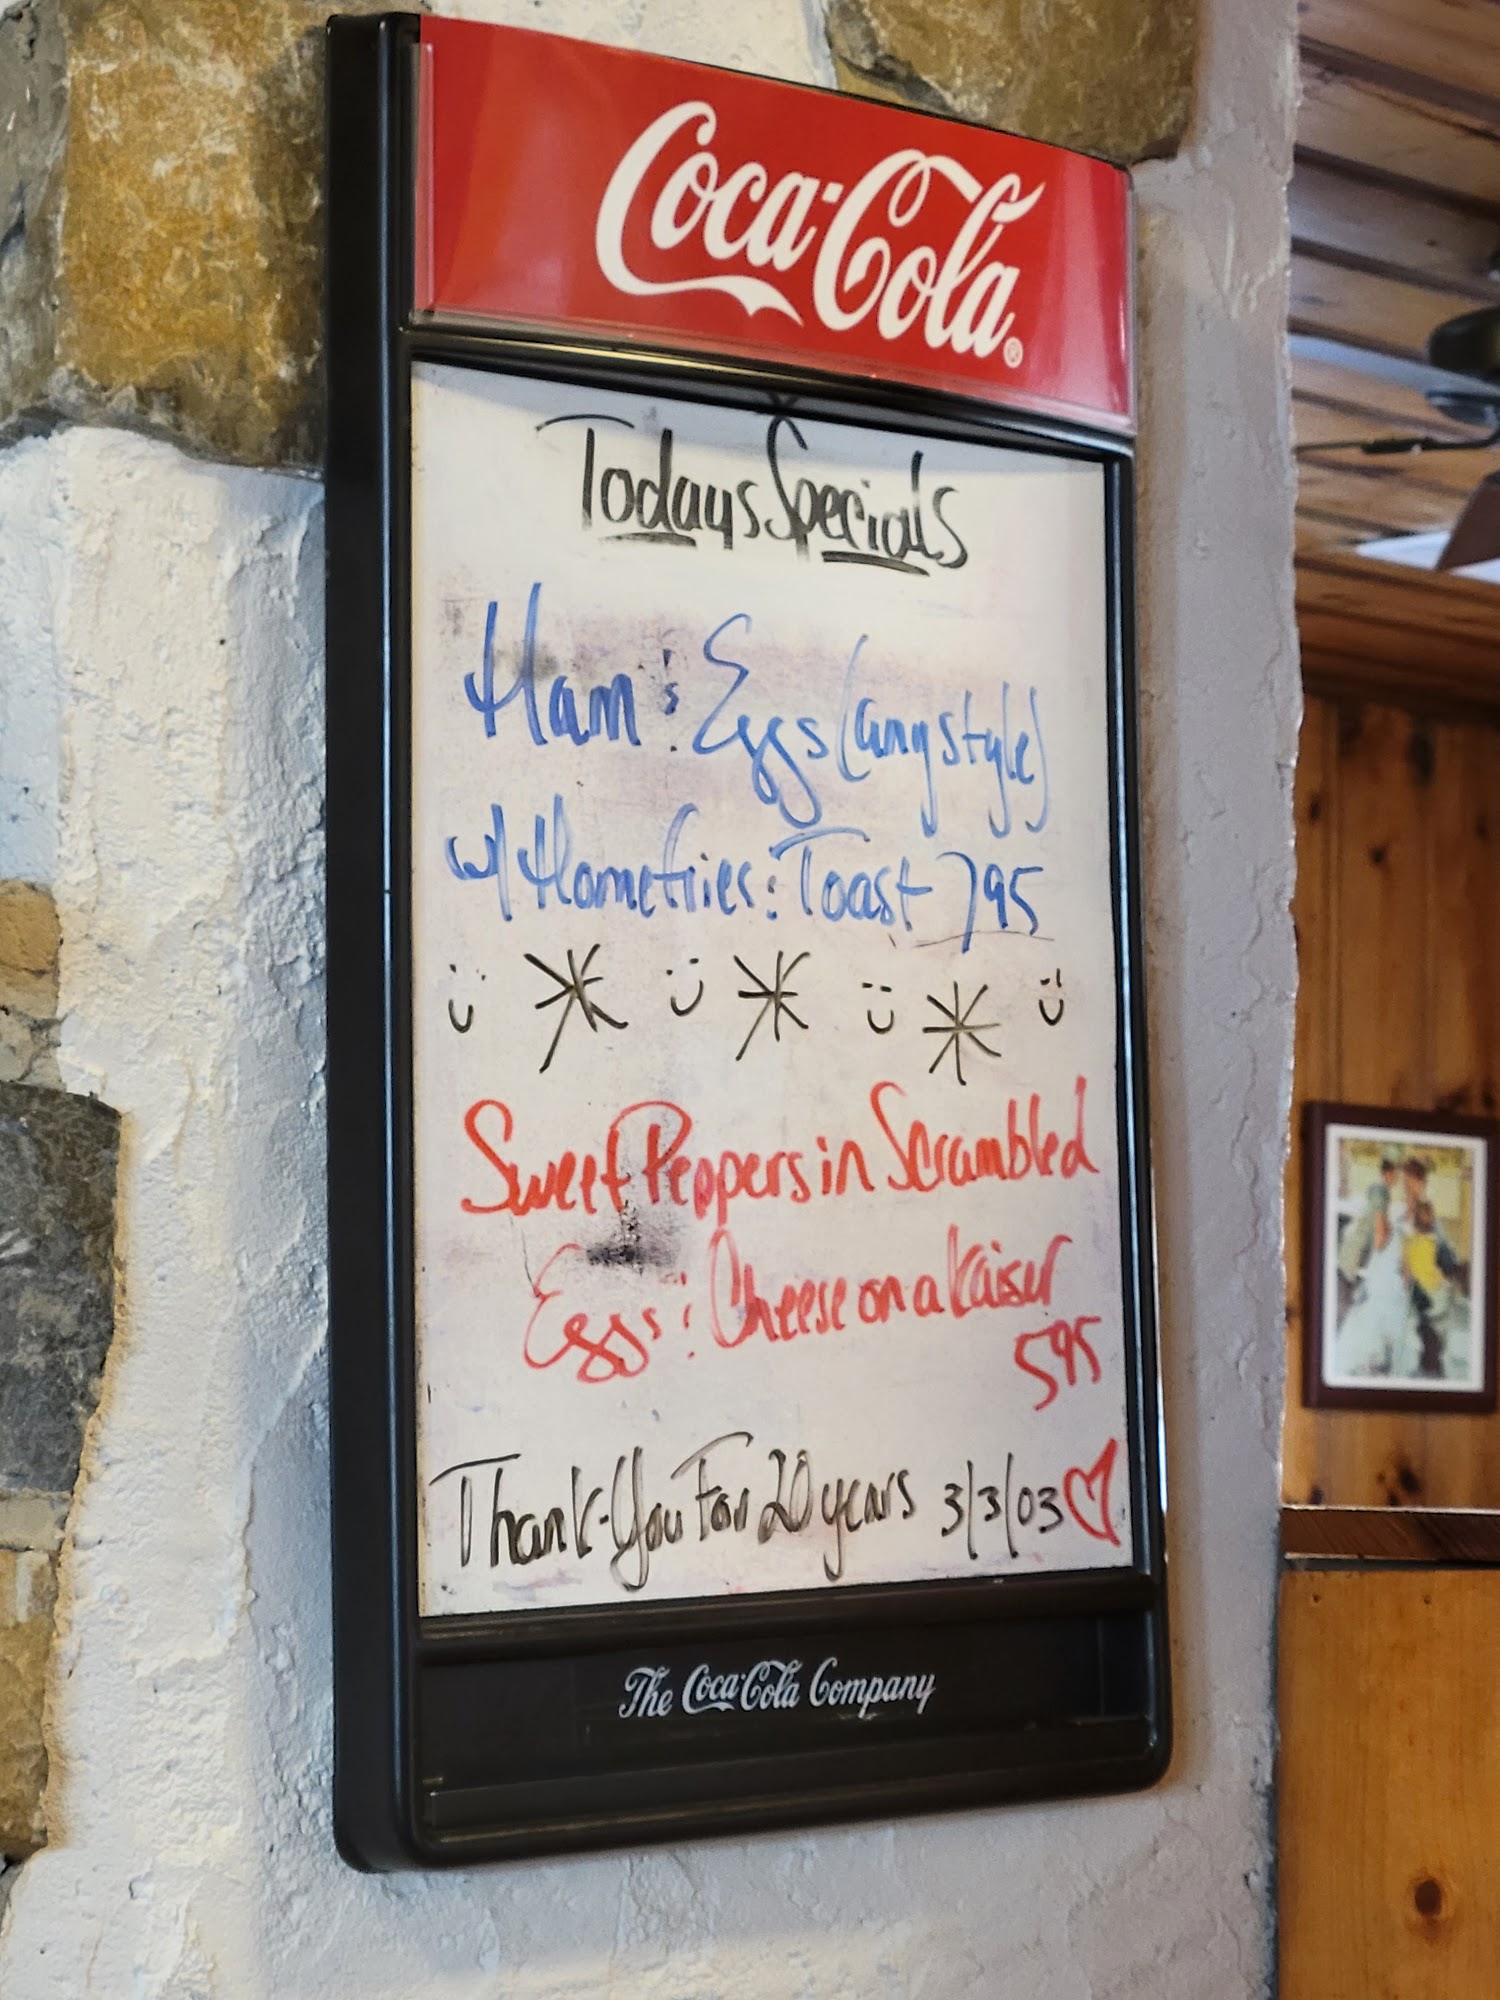 Coca-Cola®
Todays Specials
Ham & Eggs (any style)
w/ Homefries & Toast 795
Sweet Peppers in Scrambled
Eggs & Cheese on a Kaiser
595
Thank-You For 20 years 3/3/03
The Coca-Cola Company